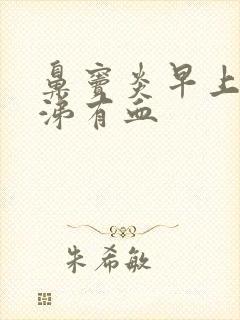 鼻窦炎早上
涕有血
朱希敏